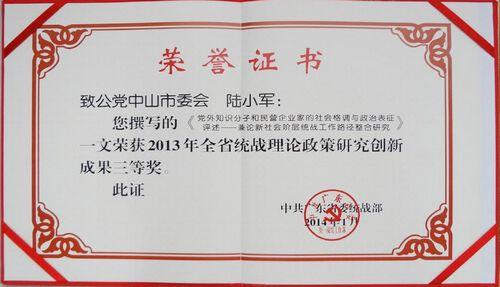 荣誉证书
致公党中山市委会 陆小军：
您撰写的《党外知识分子和民营企业家的社会格调与政治表征
评述——兼论新社会阶层统战工作路径整合研究》
一文荣获2013年全省统战理论政策研究创新
成果三等奖。
此证
中共广东省委统战部
2014年1月